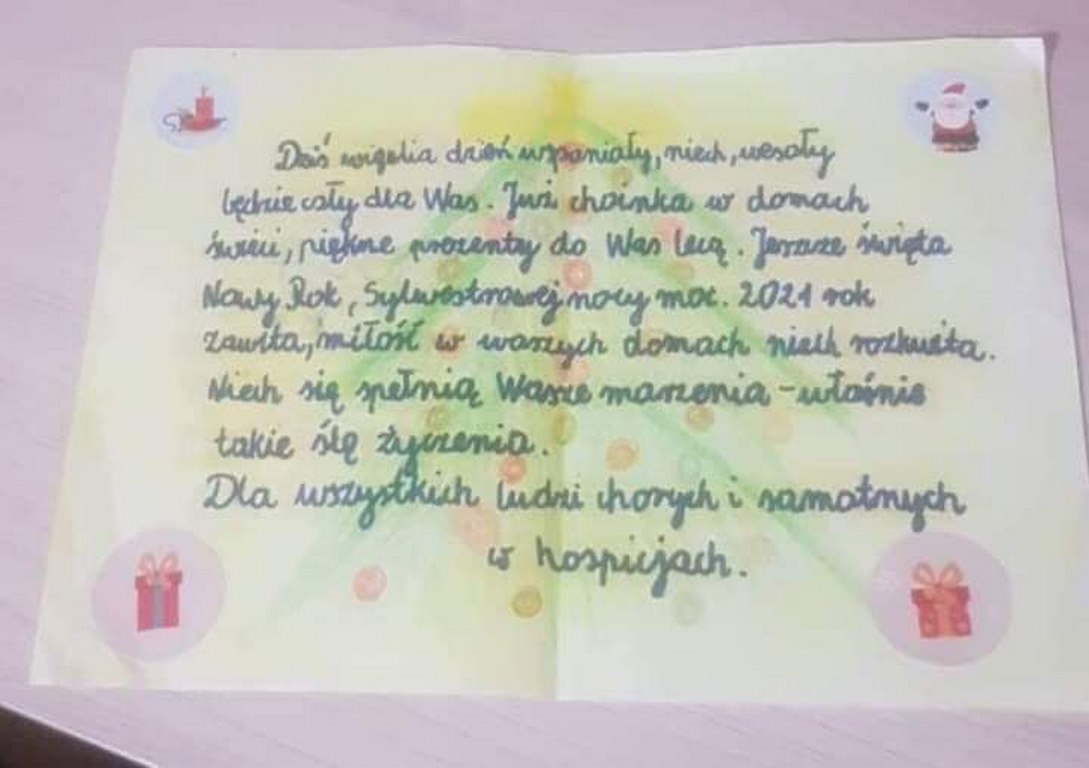 Dziś wigilia dzień wspaniały, niech, wesoły
będzie cały dla Was. Już choinka w domach
świeci, piękne prezenty do Was lecą. Jeszcze święta
Nowy Rok, Sylwestrowej nocy moc. 2021 rok
zawita, miłość w waszych domach niech rozkwita.
Niech się spełnią Wasze marzenia - właśnie
takie ślę życzenia.
Dla wszystkich ludzi chorych i samotnych
w hospicjach.